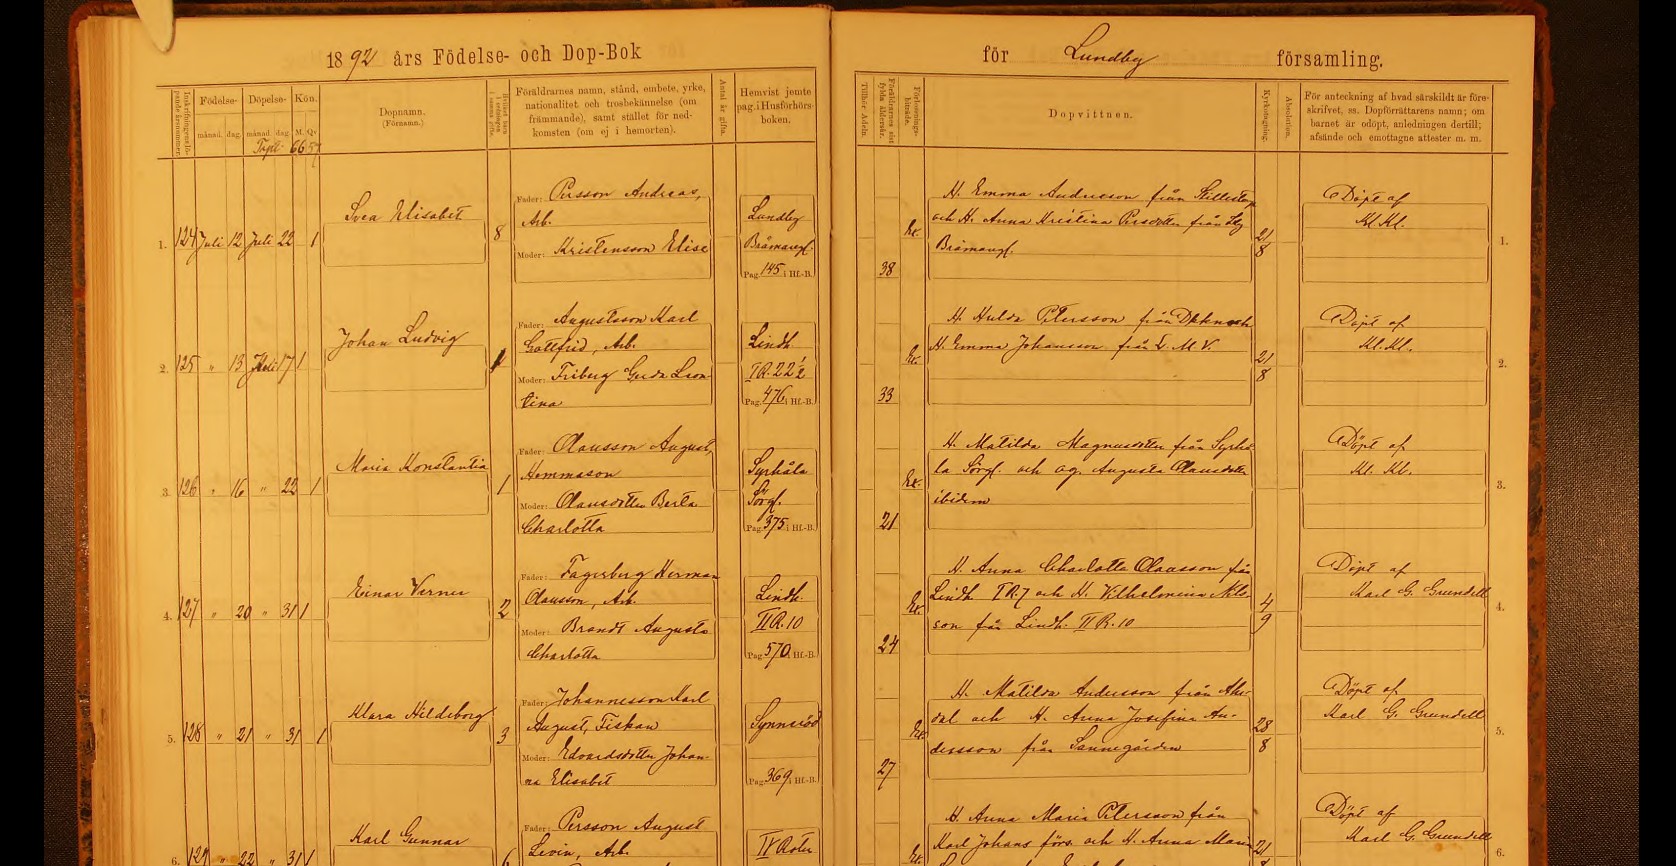 1892 års Födelse- och Dop-Bok
för Lundby församling.
Inskrifningens löpande årsnommer.
Födelse-
månad. dag.
Döpelse-
månad. dag
Kön.
M. Qv.
66 57
Dopnamn.
(Förnamn.)
Föräldrarnes namn, stånd, embete, yrke,
nationalitet och trosbekännelse (om
främmande), samt stället för ned-
komsten (om ej i hemorten).
Antal kr. gifta.
Hemvist jemte
pag. i Husförhörs-
boken.
Tillhör Adeln.
Föräldrarnes sist fylda åldersår.
Förlossnings-biträde.
Dopvittnen.
Kyrkotagning.
Absolution.
För anteckning af hvad särskildt är före-
skrifvet, ss. Dopförrättarens namn; om
barnet är odöpt, anledningen dertill;
afsände och emottagne attester m. m.
1. 124 Juli 12 Juli 22 1
Svea Elisabet
8
Fader: Persson Andreas,
Arb.
Moder: Kristensson Elise
Lundby
Brämaregl.
Pag. 145 i Hf.-B.
38
Ex.
H. Emma Andreeson från
och H. Anna Kristina Persdotter från Lby
Brämaregl.
21
8
Döpt af
Kl. Kl.
1.
2. 125 " 13 Juli 17 1
Johan Ludvig
1
Fader: Augustsson Karl
Gottfrid, Arb.
Moder: Friberg Gerda Leon-
tina
Lindh
I R. 22 1/2
Pag. 476 i Hf.-B.
33
Ex.
H. Hulda Petersson från och
H. Emma Johansson från L. M. V.
21
8
Döpt af
Kl. Kl.
2.
3. 126 " 16 " 22 1
Maria Konstantia
1
Fader: Olausson August,
Hemmason
Moder: Olausdotter Berta
Charlotta
Syrhåla
Sörg.
Pag. 375 i Hf.-B.
21
Ex.
H. Matilda Magnusdotter från Syrhå-
la Sörg. och og. Augusta Olausdotter
ibidem
Döpt af
Kl. Kl.
3.
4. 127 " 20 " 31 1
Einar Verner
2
Fader: Fagerberg Herman
Olausson, Arb.
Moder: Brandt Augusta
Charlotta
Lindh.
II R. 10
Pag. 570 Hf.-B.
24
Ex.
H. Anna Charlotta Olausson från
Lindh I R. 7 och H. Vilhelmina Nils-
son från Lindh. II R. 10
4
9
Döpt af
Karl G. Grundell
4.
5. 128 " 21 " 31 1
Klara Hildeborg
3
Fader: Johannesson Karl
August, Fiskare
Moder: Edvardsdotter Johan-
na Elisabet
Synneröd
Pag. 369 i Hf.-B.
27
Ex.
H. Matilda Andersson från
dal och H. Anna Josefina An-
dersson från Sannegården
28
8
Döpt af
Karl G. Grundell
5.
6. 129 " 22 " 31 1
Karl Gunnar
Fader: Persson August
Levin, Arb.
IV Rote
Ex.
H. Anna Maria Petersson från
Karl Johans förs. och H. Anna Maria
21
Döpt af
Karl G. Grundell
6.